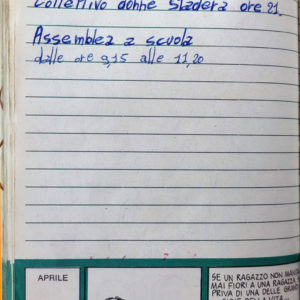 Collettivo donne Stadera ore 21.
Assemblea a scuola
dalle ore 9,15 alle 11,20
APRILE
SE UN RAGAZZO NON MANDA
MAI FIORI A UNA RAGAZZA
PRIVA DI UNA DELLE GRANDI
DELLA VITA